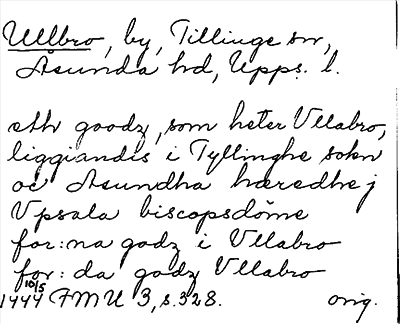 Ullbro, by, Tillinge sn,
Åsunda hd, Upps. l.
eth goodz, som heter Vllabro,
liggiandis i Tyllinghe sokn
oc Asundha hæredhe j
Vpsala biscopsdöme
for:na godz i Vllabro
for:da godz Vllabro
10/5
1444 FMU 3, s. 328. orig.